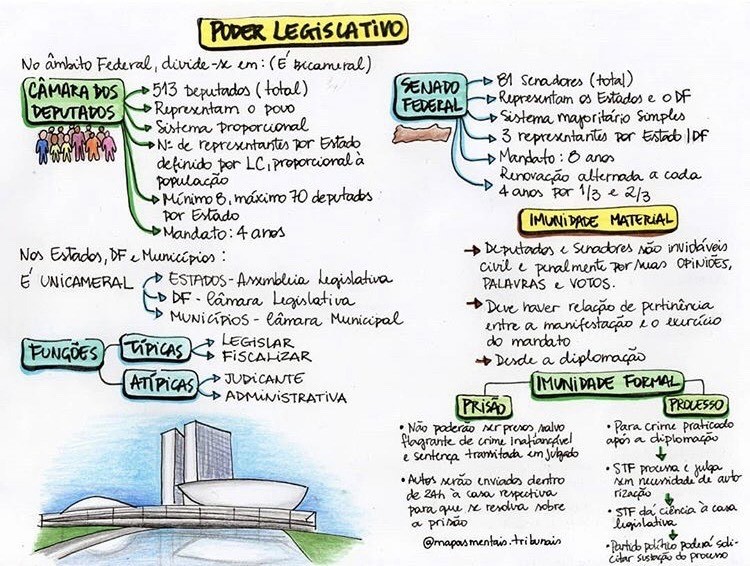 PODER LEGISLATIVO
No âmbito Federal, divide-se em: (É bicameral)
CÂMARA DOS
DEPUTADOS
513 Deputados (total)
Representam o povo
Sistema proporcional
Nº de representantes por Estado
definido por LC, proporcional à
população
Mínimo 8, máximo 70 deputados
por Estado
Mandato: 4 anos
SENADO
FEDERAL
81 Senadores (total)
Representam os Estados e o DF
Sistema majoritário simples
3 representantes por Estado/DF
Mandato: 8 anos
Renovação alternada a cada
4 anos por 1/3 e 2/3
Nos Estados, DF e Municípios:
É UNICAMERAL
ESTADOS - Assembleia Legislativa
DF - Câmara Legislativa
MUNICÍPIOS - Câmara Municipal
FUNÇÕES
TÍPICAS
LEGISLAR
FISCALIZAR
ATÍPICAS
JUDICANTE
ADMINISTRATIVA
IMUNIDADE MATERIAL
Deputados e Senadores são invioláveis
civil e penalmente por suas OPINIÕES,
PALAVRAS e VOTOS.
Deve haver relação de pertinência
entre a manifestação e o exercício
do mandato
Desde a diplomação
IMUNIDADE FORMAL
PRISÃO
• Não poderão ser presos, salvo
flagrante de crime inafiançável
e sentença transitada em julgado
• Autos serão enviados dentro
de 24h à casa respectiva
para que se resolva sobre
a prisão
PROCESSO
• Para crime praticado
após a diplomação
• STF processa e julga
sem necessidade de auto-
rização
• STF dá ciência à casa
legislativa
• Partido político poderá soli-
citar sustação do processo
@mapasmentais.tribunais